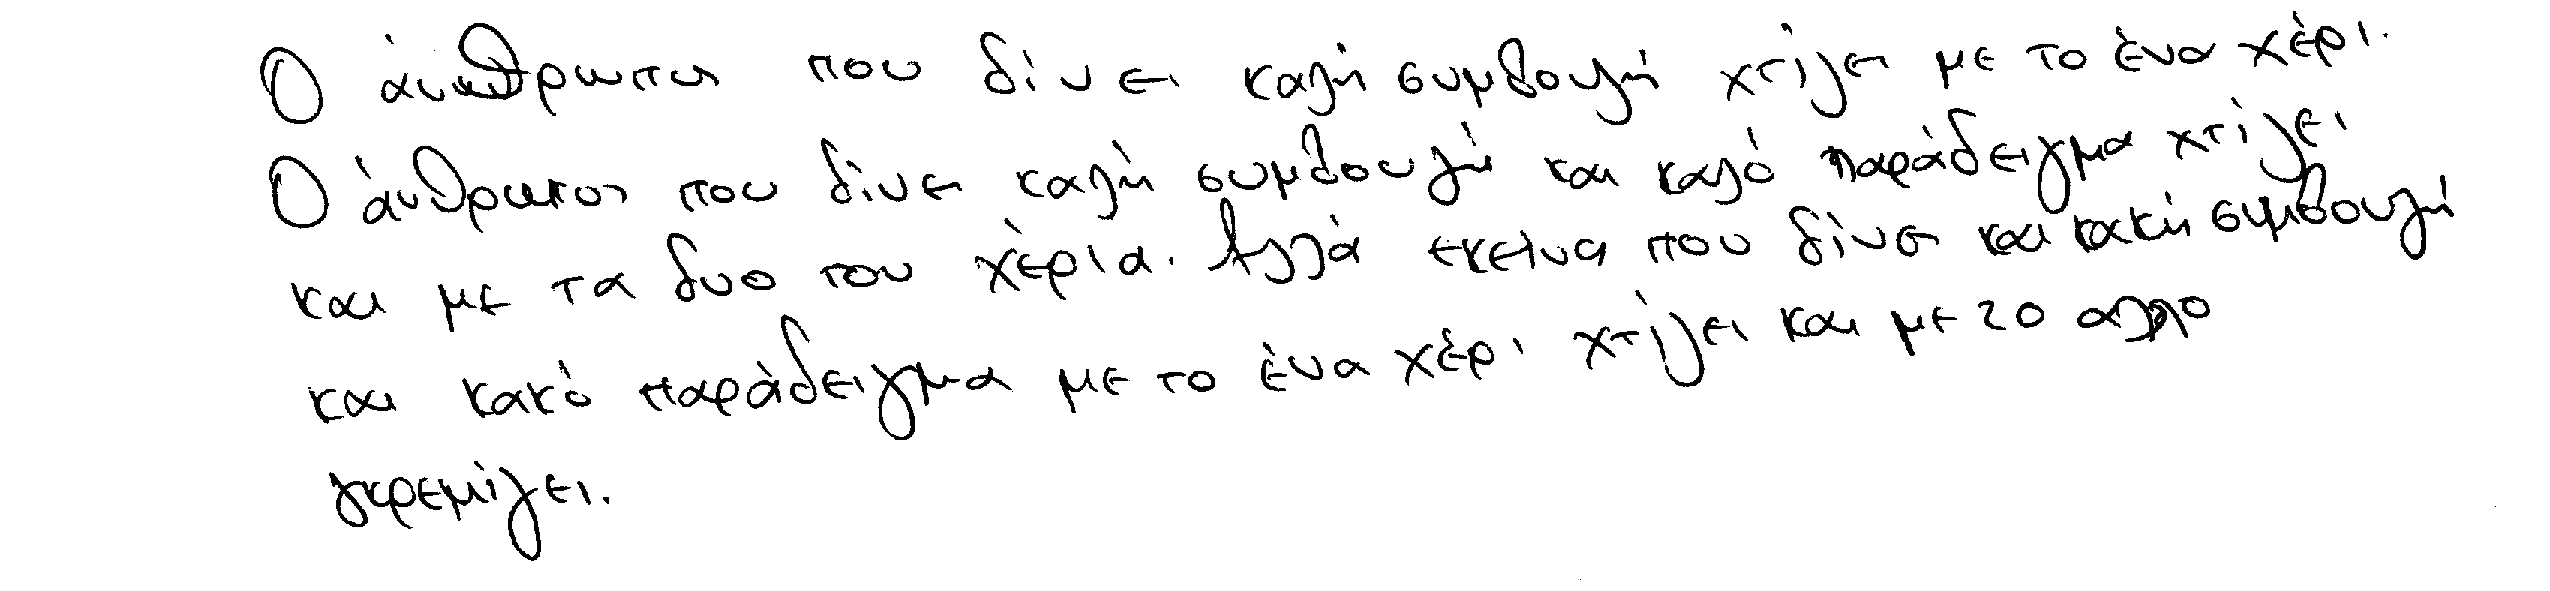 Ο άνθρωπος που δίνει καλή συμβουλή χτίζει με το ένα χέρι.
Ο άνθρωπος που δίνει καλή συμβουλή και καλό παράδειγμα χτίζει
και με τα δυο του χέρια. Αλλά εκείνος που δίνει και κακή συμβουλή
και κακό παράδειγμα με το ένα χέρι χτίζει και με το αλλο
γκρεμίζει.